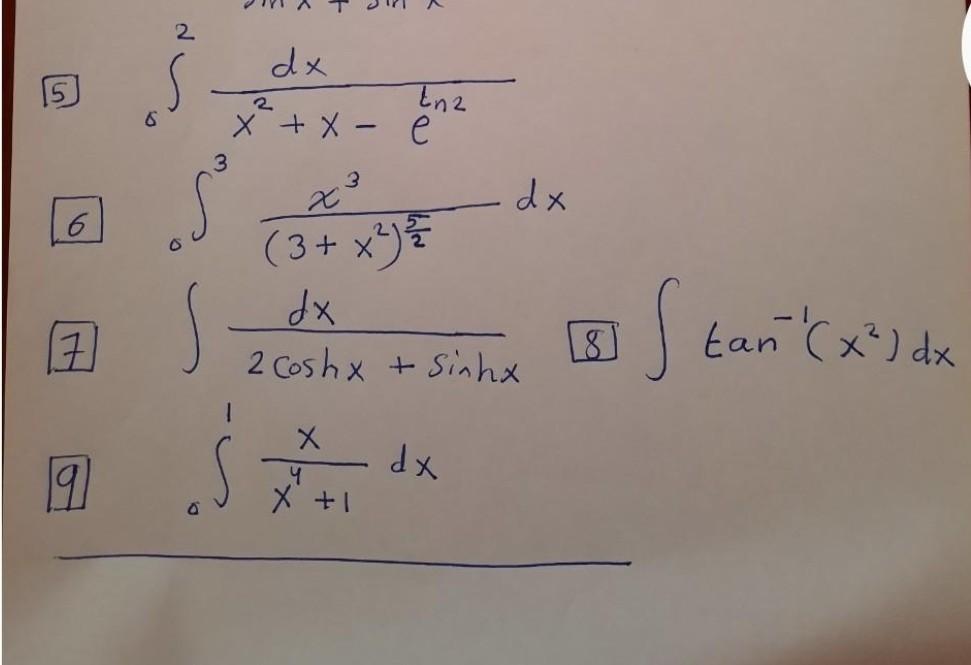 [5] ∫₀² dx / (x² + x - e^(ln2))
[6] ∫₀³ x³ / (3 + x²)^(5/2) dx
[7] ∫ dx / (2coshx + sinhx) [8] ∫ tan⁻¹(x²) dx
[9] ∫₀¹ x / (x⁴ + 1) dx